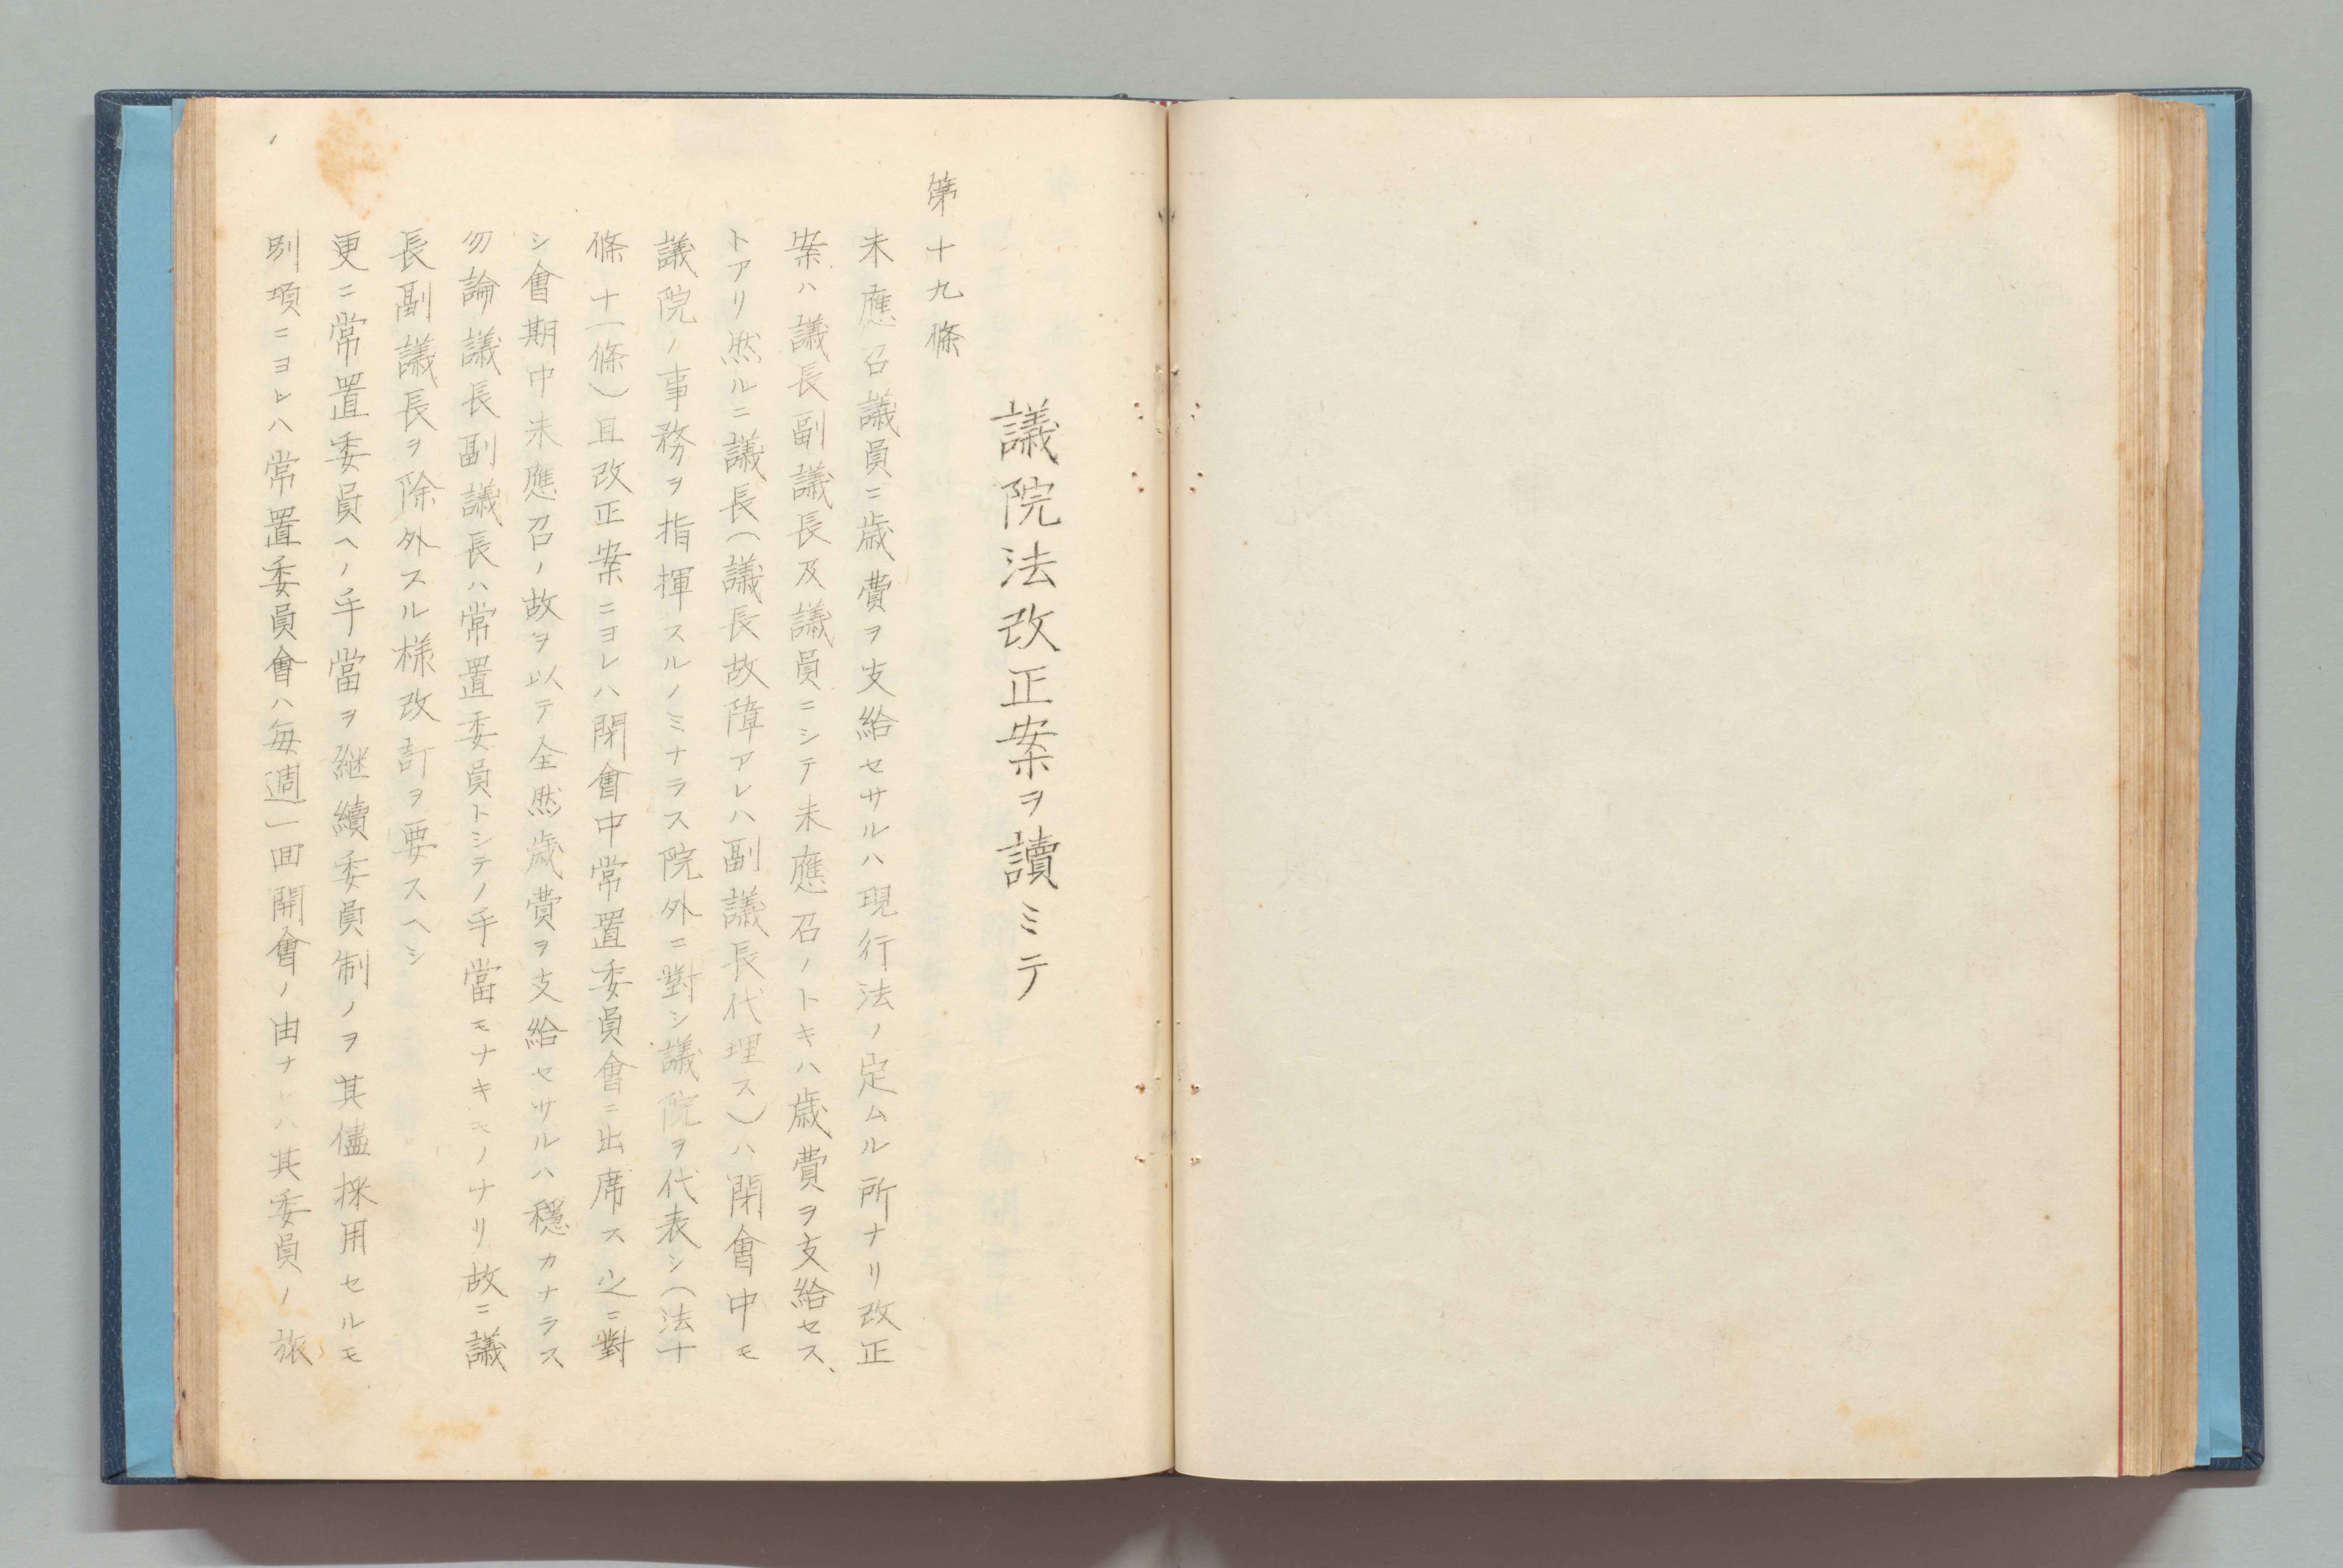 議院法改正案ヲ讀ミテ
第十九條
未應召議員ニ歳費ヲ支給セサルハ現行法ノ定ムル所ナリ改正
案ハ議長副議長及議員ニシテ未應召ノトキハ歳費ヲ支給セス、
トアリ然ルニ議長(議長故障アレハ副議長代理ス)ハ閉會中モ
議院ノ事務ヲ指揮スルノミナラス院外ニ對シ議院ヲ代表シ(法十
條十一條)且改正案ニヨレハ閉會中常置委員會ニ出席ス之ニ對
シ會期中未應召ノ故ヲ以テ全然歳費ヲ支給セサルハ穩カナラス
勿論議長副議長ハ常置委員トシテノ手當モナキモノナリ故ニ議
長副議長ヲ除外スル様改訂ヲ要スヘシ
更ニ常置委員ヘノ手當ヲ継續委員制ノヲ其儘採用セルモ
別項ニヨレハ常置委員會ハ毎週一回開會ノ由ナレハ其委員ノ旅